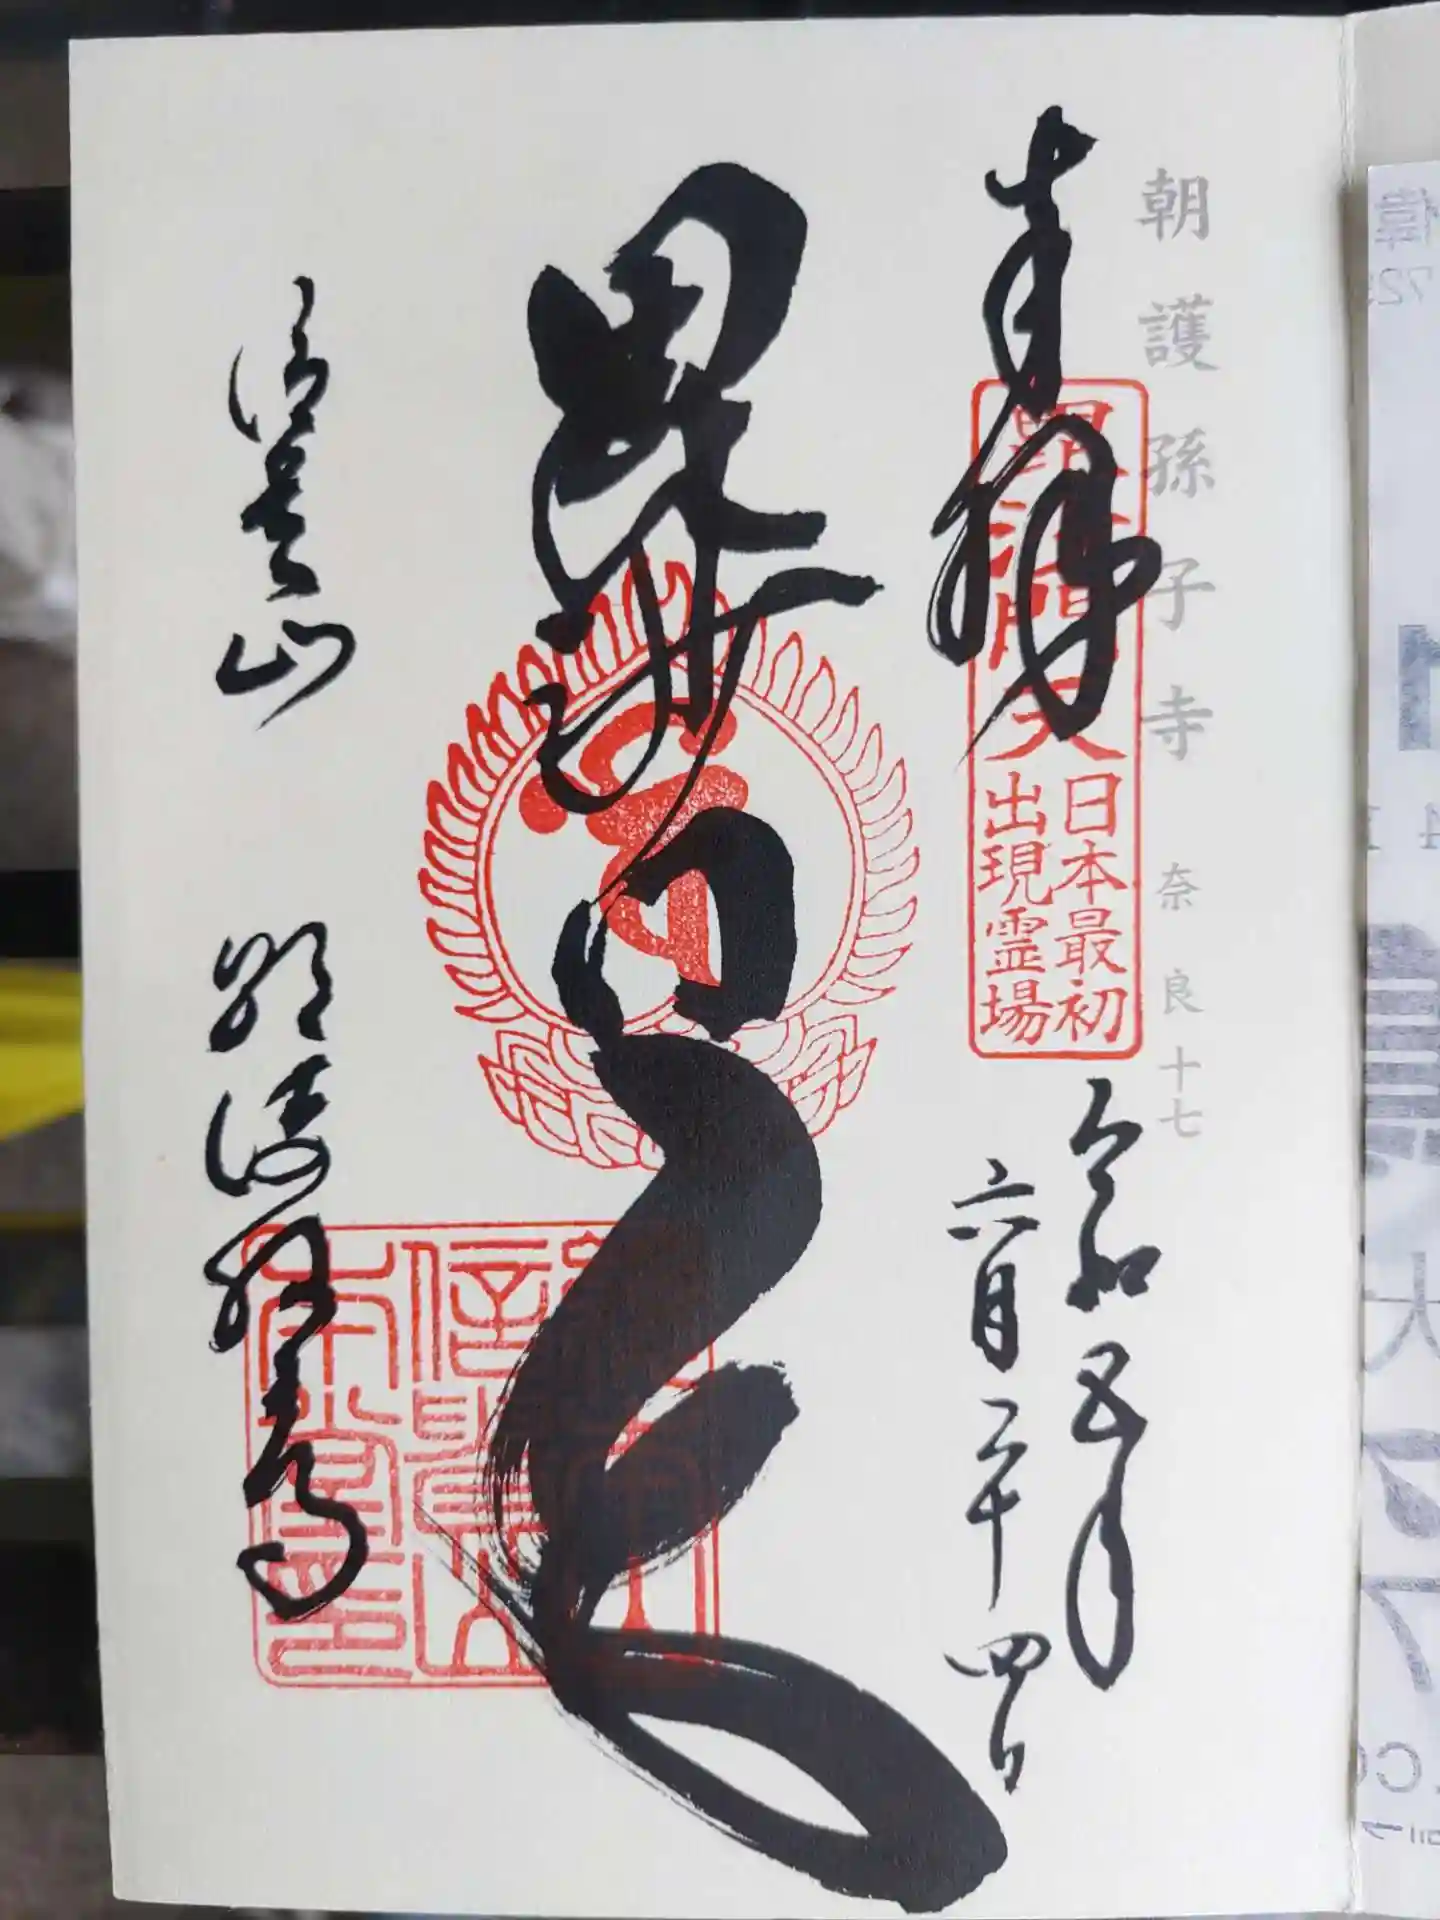 朝護孫子寺 奈良十七
奉拝
毘沙門天
日本最初
出現霊場
令和五年
六月二十四日
毘沙門天
信貴山
朝護孫子寺